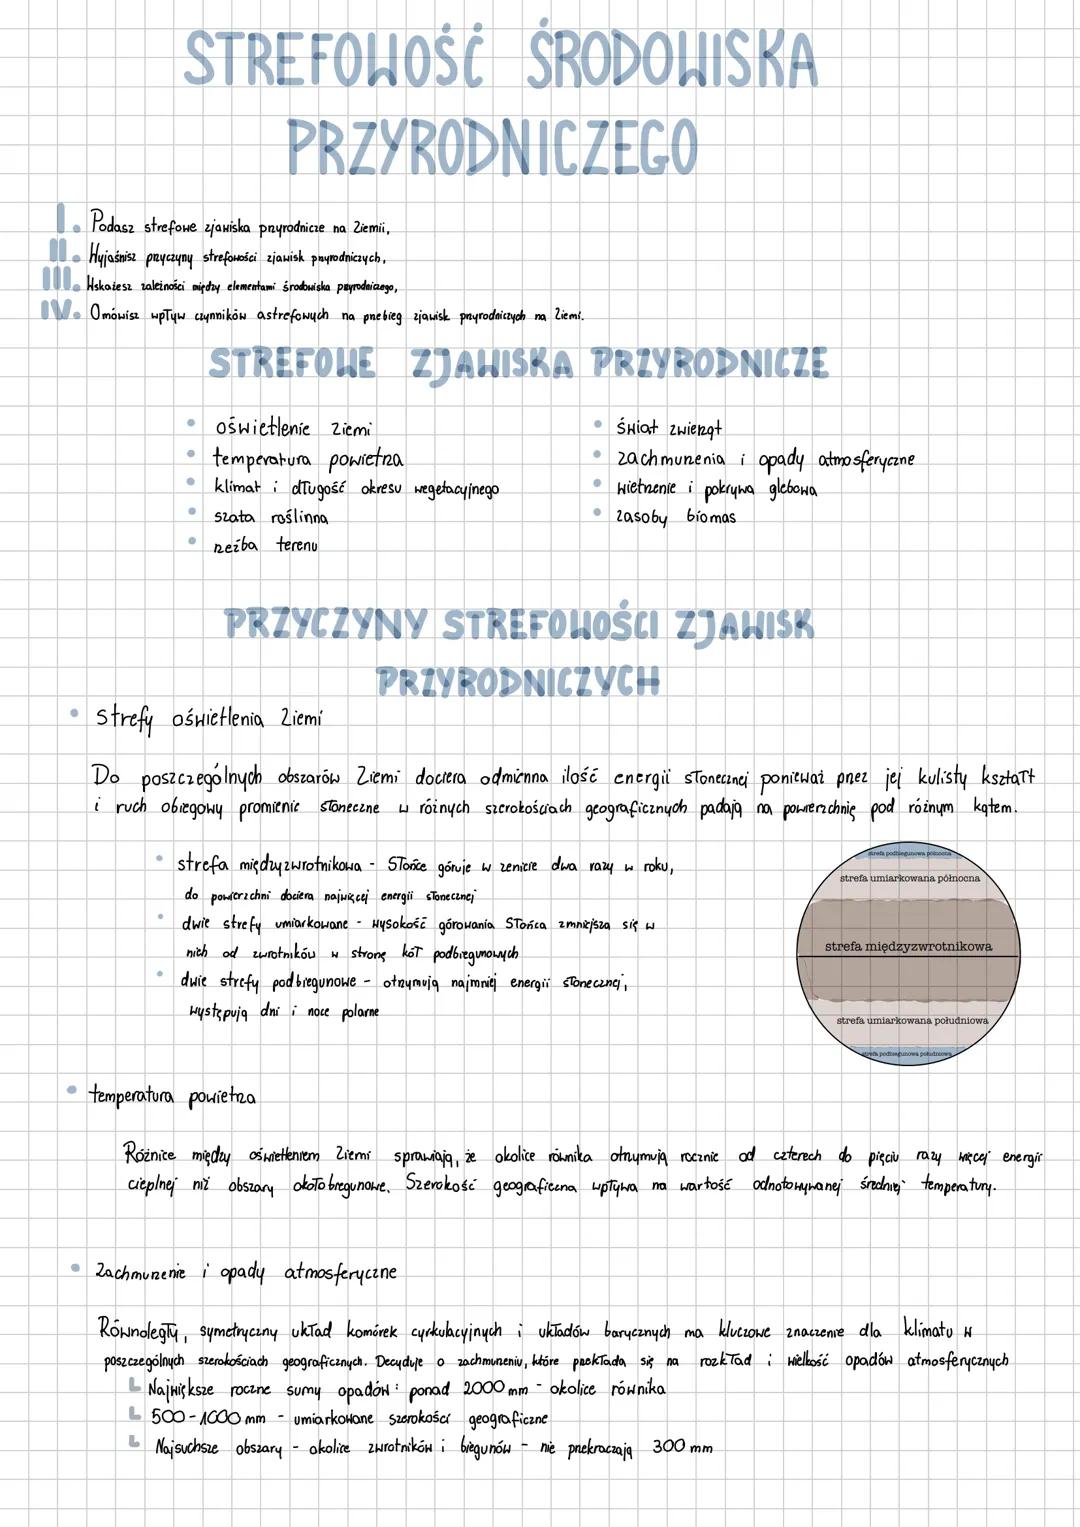 STREFOWOŚĆ ŚRODOWISKA
PRZYRODNICZEGO
I. Podasz strefowe zjawiska przyrodnicze na Ziemii,
II. Wyjaśnisz przyczyny strefowości zjawisk przyrodniczych,
III. Wskażesz zależności między elementami środowiska przyrodniczego,
IV. Omówisz wpływ czynników astrefowych na przebieg zjawisk przyrodniczych na Ziemi.
STREFOWE ZJAWISKA PRZYRODNICZE
• oświetlenie Ziemi
• temperatura powietrza
• klimat i długość okresu wegetacyjnego
• szata roślinna
• rzeźba terenu
• świat zwierząt
• zachmurzenia i opady atmosferyczne
• wietrzenie i pokrywa glebowa
• zasoby biomas
PRZYCZYNY STREFOWOŚCI ZJAWISK
PRZYRODNICZYCH
• strefy oświetlenia Ziemi
Do poszczególnych obszarów Ziemi dociera odmienna ilość energii słonecznej ponieważ przez jej kulisty kształt
i ruch obiegowy promienie słoneczne w różnych szerokościach geograficznych padają na powierzchnię pod różnym kątem.
• strefa międzyzwrotnikowa - Słońce góruje w zenicie dwa razy w roku,
do powierzchni dociera najwięcej energii słonecznej
• dwie strefy umiarkowane - wysokość górowania Słońca zmniejsza się w
nich od zwrotników w stronę kół podbiegunowych
• dwie strefy podbiegunowe - otrzymują najmniej energii słonecznej,
występują dni i noce polarne
strefa podbiegunowa północna
strefa umiarkowana północna
strefa międzyzwrotnikowa
strefa umiarkowana południowa
strefa podbiegunowa południowa
• temperatura powietrza
Różnice między oświetleniem Ziemi sprawiają, że okolice równika otrzymują rocznie od czterech do pięciu razy więcej energii
cieplnej niż obszary okołobiegunowe. Szerokość geograficzna wpływa na wartość odnotowywanej średniej temperatury.
• Zachmurzenie i opady atmosferyczne
Równoległy, symetryczny układ komórek cyrkulacyjnych i układów barycznych ma kluczowe znaczenie dla klimatu w
poszczególnych szerokościach geograficznych. Decyduje o zachmurzeniu, które przekłada się na rozkład i wielkość opadów atmosferycznych
L Największe roczne sumy opadów: ponad 2000 mm - okolice równika
L 500-1000 mm - umiarkowane szerokości geograficzne
L Najsuchsze obszary - okolice zwrotników i biegunów - nie przekraczają 300 mm